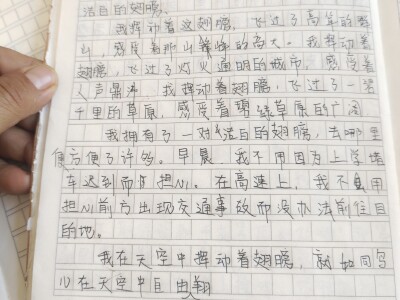 洁白的翅膀。
我舞动着这翅膀，飞过了高耸的雪
山，感受着那山峰的高大。我舞动着
翅膀，飞过了灯火通明的城市，感受着
人声鼎沸。我舞动着翅膀，飞过了一望
千里的草原，感受着碧绿草原的广阔
我拥有了一对洁白的翅膀，去哪里
便方便了许多。早晨，我不用因为上学堵
车迟到而担心。在高速上，我不用
担心前方出现交通事故而没办法前往目
的地。
我在天空中舞动着翅膀，就如同写
心在天空中自由翔